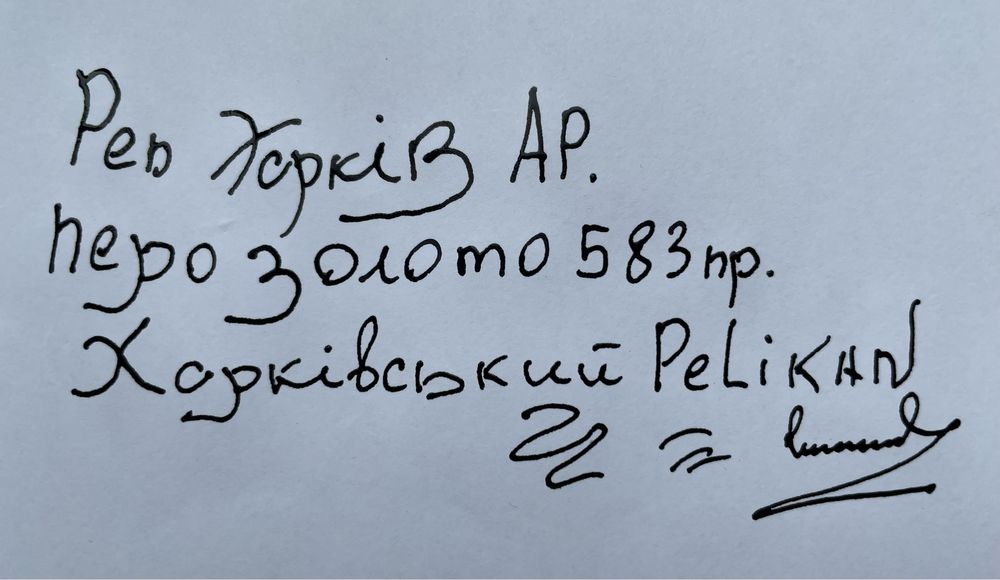 Pen Харків АР.
перо золото 583 пр.
Харківський PeLiKAN